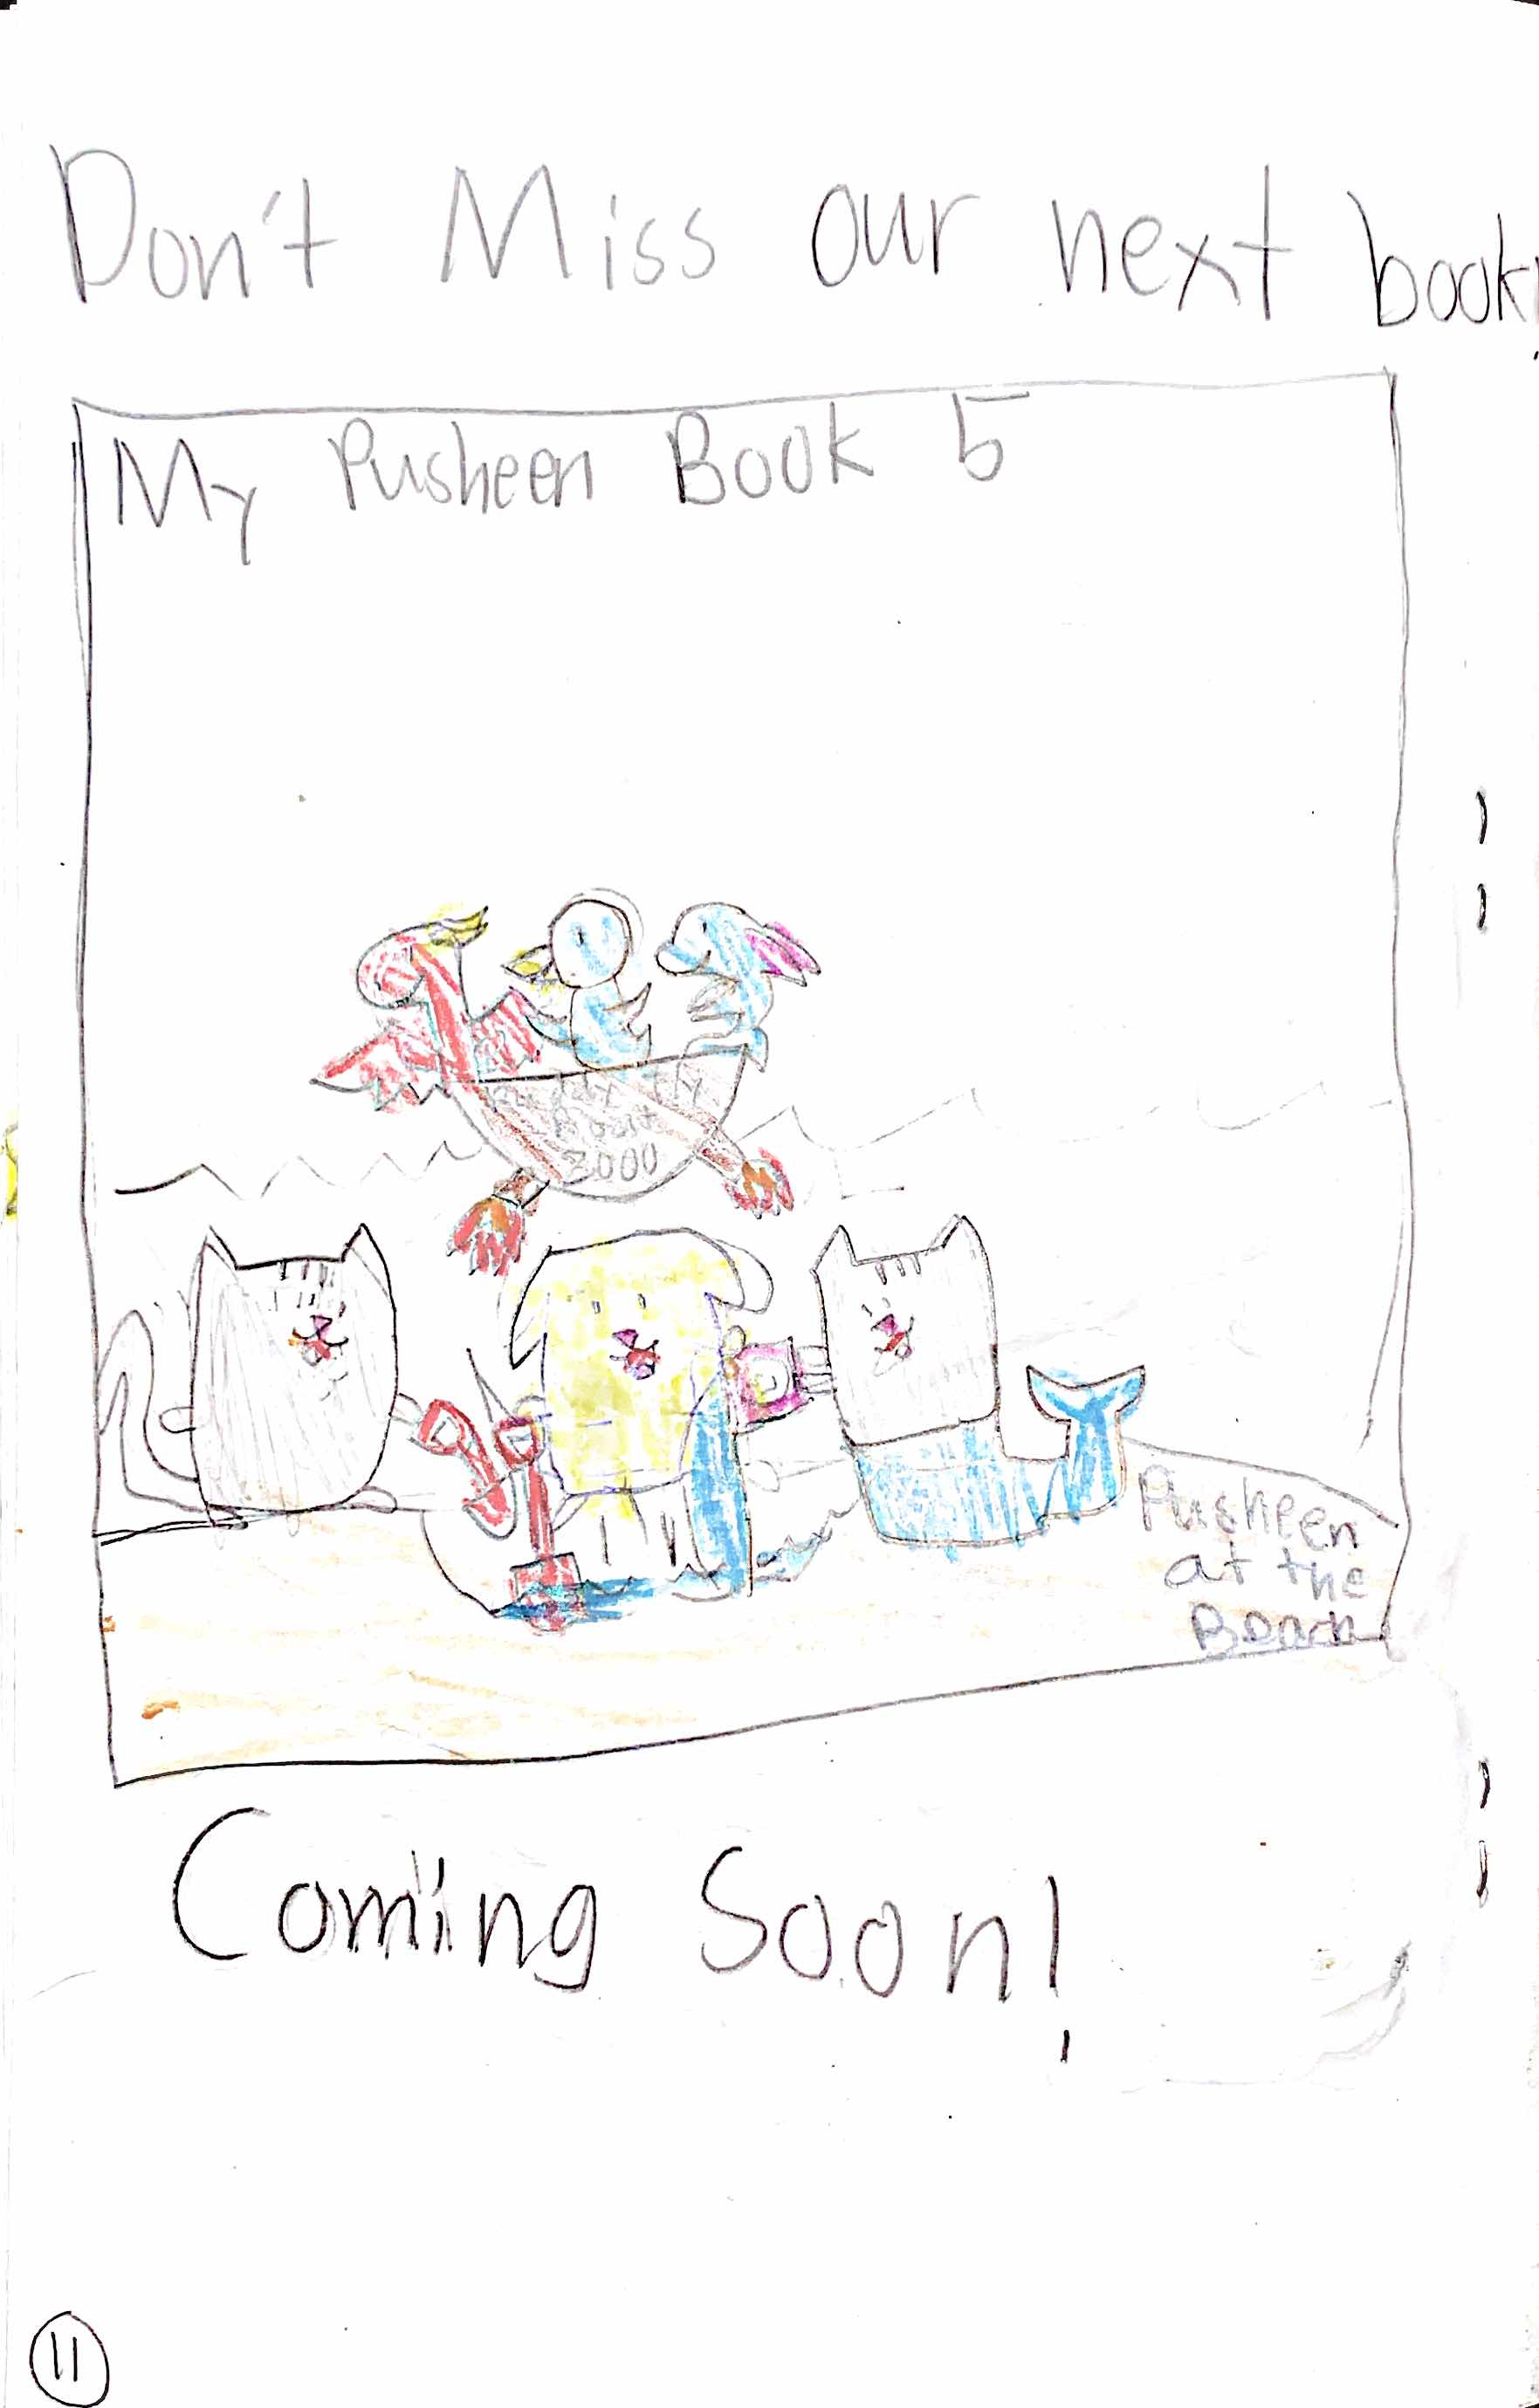 Don't Miss our next book!
My Pusheen Book 5
Fly
Boat
3000
Pusheen
at the
Beach
Coming Soon!
11